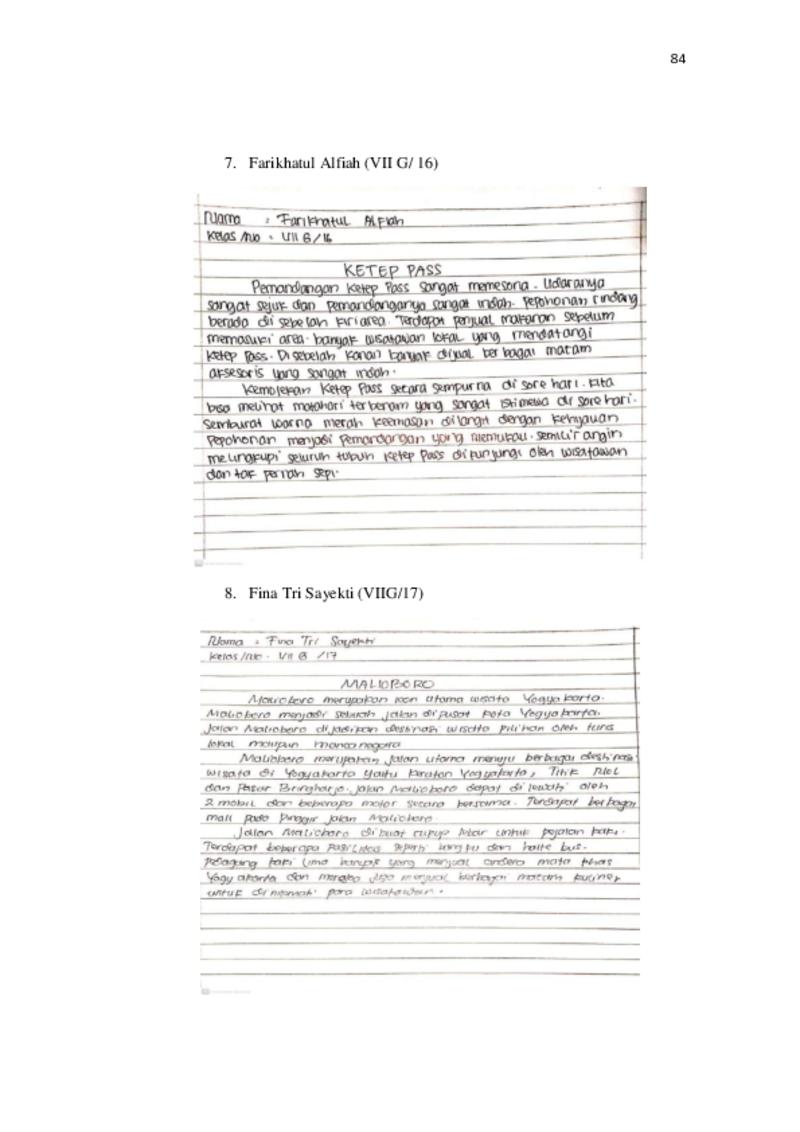 84
7. Farikhatul Alfiah (VII G/ 16)
Nama : Farikhatul Alfiah
Kelas /No : VII G/16
KETEP PASS
Pemandangan Ketep Pass sangat memesona. Udaranya
sangat sejuk dan pemandanganya sangat indah. Pepohonan rindang
berada di sebelah kiri area. Terdapat penjual makanan sebelum
memasuki area. banyak wisatawan lokal yang mendatangi
Ketep Pass. Di sebelah kanan banyak dijual berbagai macam
aksesoris yang sangat indah.
Kemolekan Ketep Pass secara sempurna di sore hari. Kita
bisa melihat matahari terbenam yang sangat istimewa di sore hari.
Semburat warna merah keemasan dilangit dengan kehijauan
Pepohonan menjadi Pemandangan yang memukau. Semilir angin
melingkupi seluruh tubuh Ketep Pass dikunjungi oleh wisatawan
dan tak pernah sepi.
8. Fina Tri Sayekti (VIIG/17)
Nama : Fina Tri Sayekti
Kelas /No : VII G /17
MALIOBORO
Malioboro merupakan icon utama wisata Yogyakarta.
Malioboro menjadi sebuah jalan di pusat kota Yogyakarta.
Jalan Malioboro dijadikan destinasi wisata pilihan oleh turis
lokal maupun mancanegara
Malioboro merupakan jalan utama menuju berbagai destinasi
wisata di Yogyakarta yaitu Keraton Yogyakarta, Titik Nol
dan Pasar Bringharjo. Jalan Malioboro dapat di lewati oleh
2 mobil dan beberapa motor secara bersama. Terdapat berbagai
mall pada pinggir jalan Malioboro.
Jalan Malioboro dibuat cukup lebar untuk pejalan kaki.
Terdapat beberapa fasilitas seperti bangku dan halte bus.
Pedagang kaki lima banyak yang menjual cindera mata khas
Yogyakarta dan mereka juga menjual berbagai macam kuliner
untuk di nikmati para wisatawan.